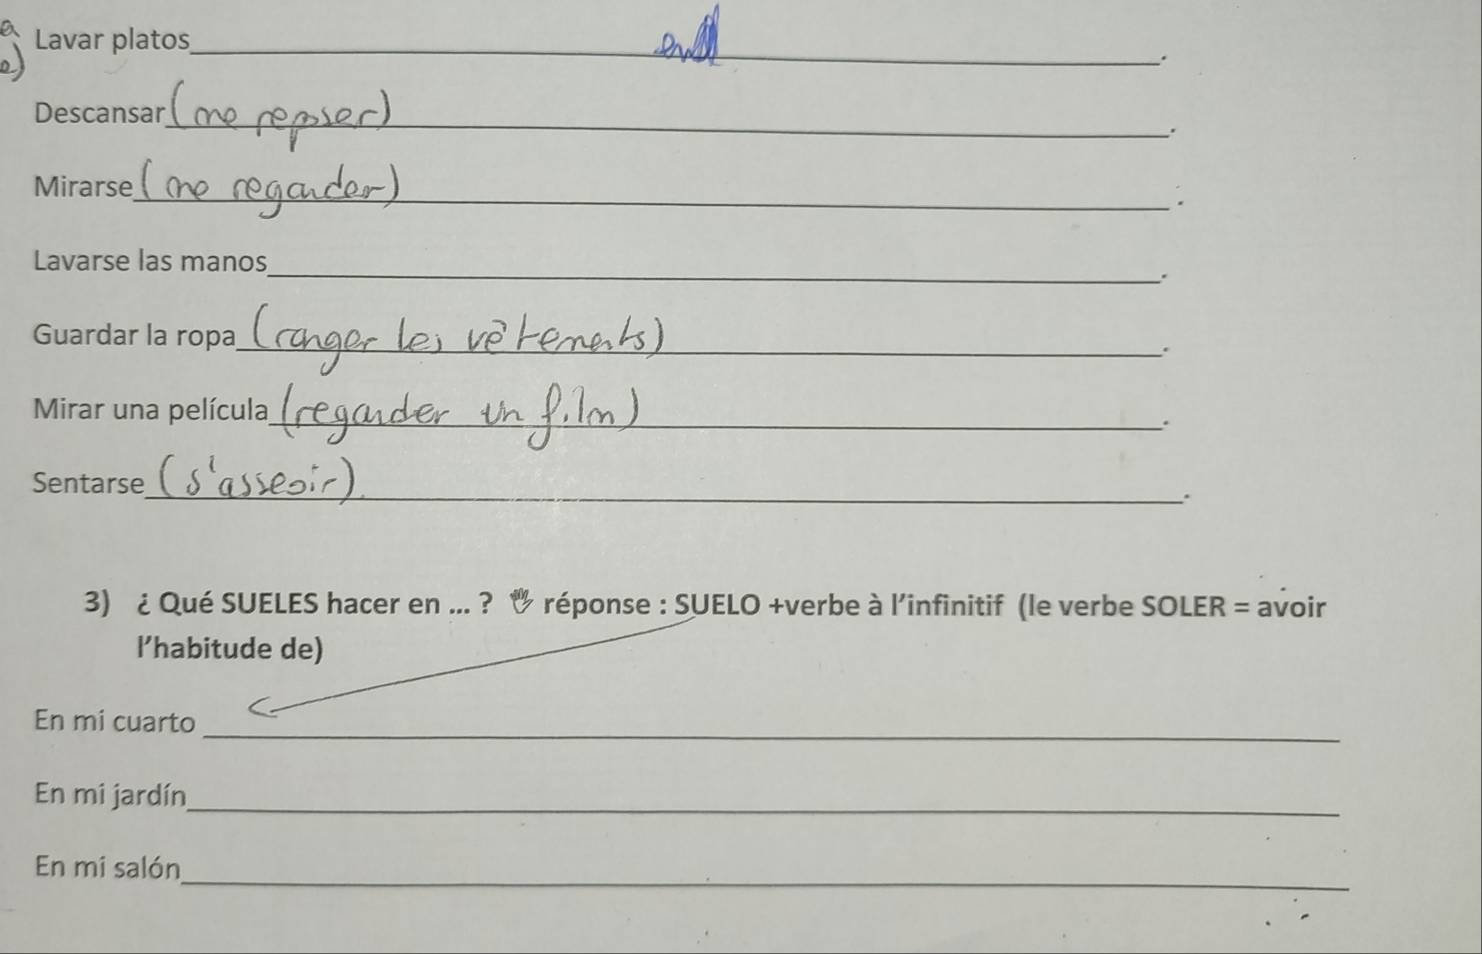 Lavar platos
Descansar (me repser)
Mirarse (me regarder)
Lavarse las manos
Guardar la ropa (ranger les vêtements)
Mirar una película (regarder un film)
Sentarse (s'asseoir)
3) ¿ Qué SUELES hacer en ... ? 👋 réponse : SUELO +verbe à l'infinitif (le verbe SOLER = avoir
l'habitude de)
En mi cuarto
En mi jardín
En mi salón